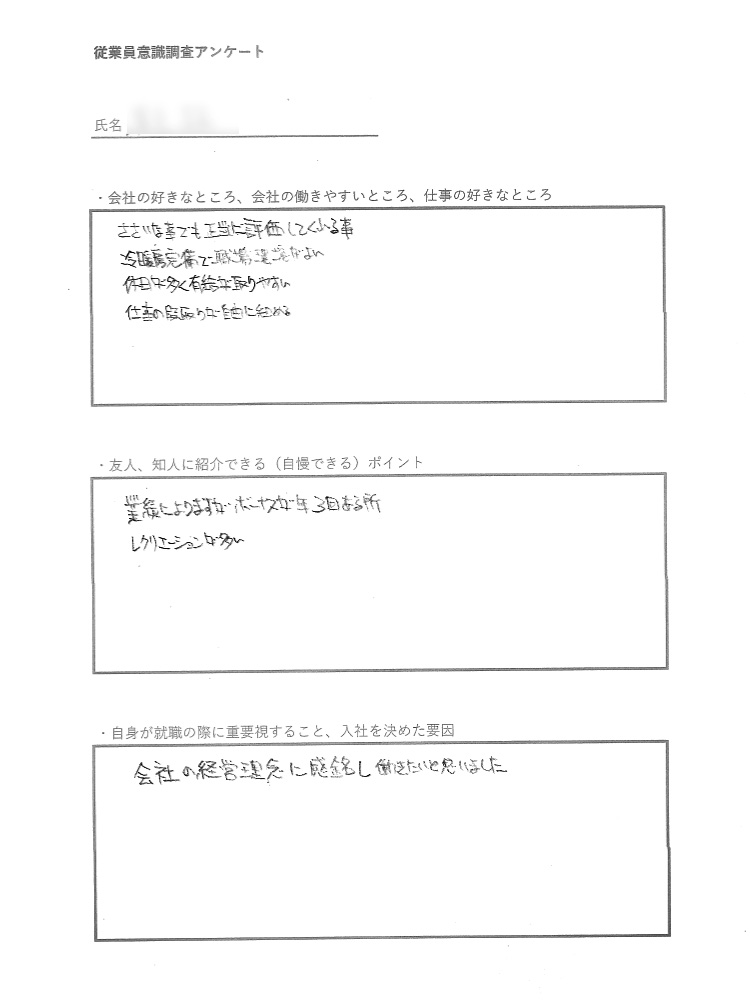 従業員意識調査アンケート
氏名
・会社の好きなところ、会社の働きやすいところ、仕事の好きなところ
ささいな事でも正当に評価してくれる事
冷暖房完備で職場環境がよい
休日が多く有給が取りやすい
仕事の段取りが自由に組める
・友人、知人に紹介できる（自慢できる）ポイント
業績によりますがボーナスが年3回ある所
レクリエーションが多い
・自身が就職の際に重要視すること、入社を決めた要因
会社の経営理念に感銘し働きたいと思いました